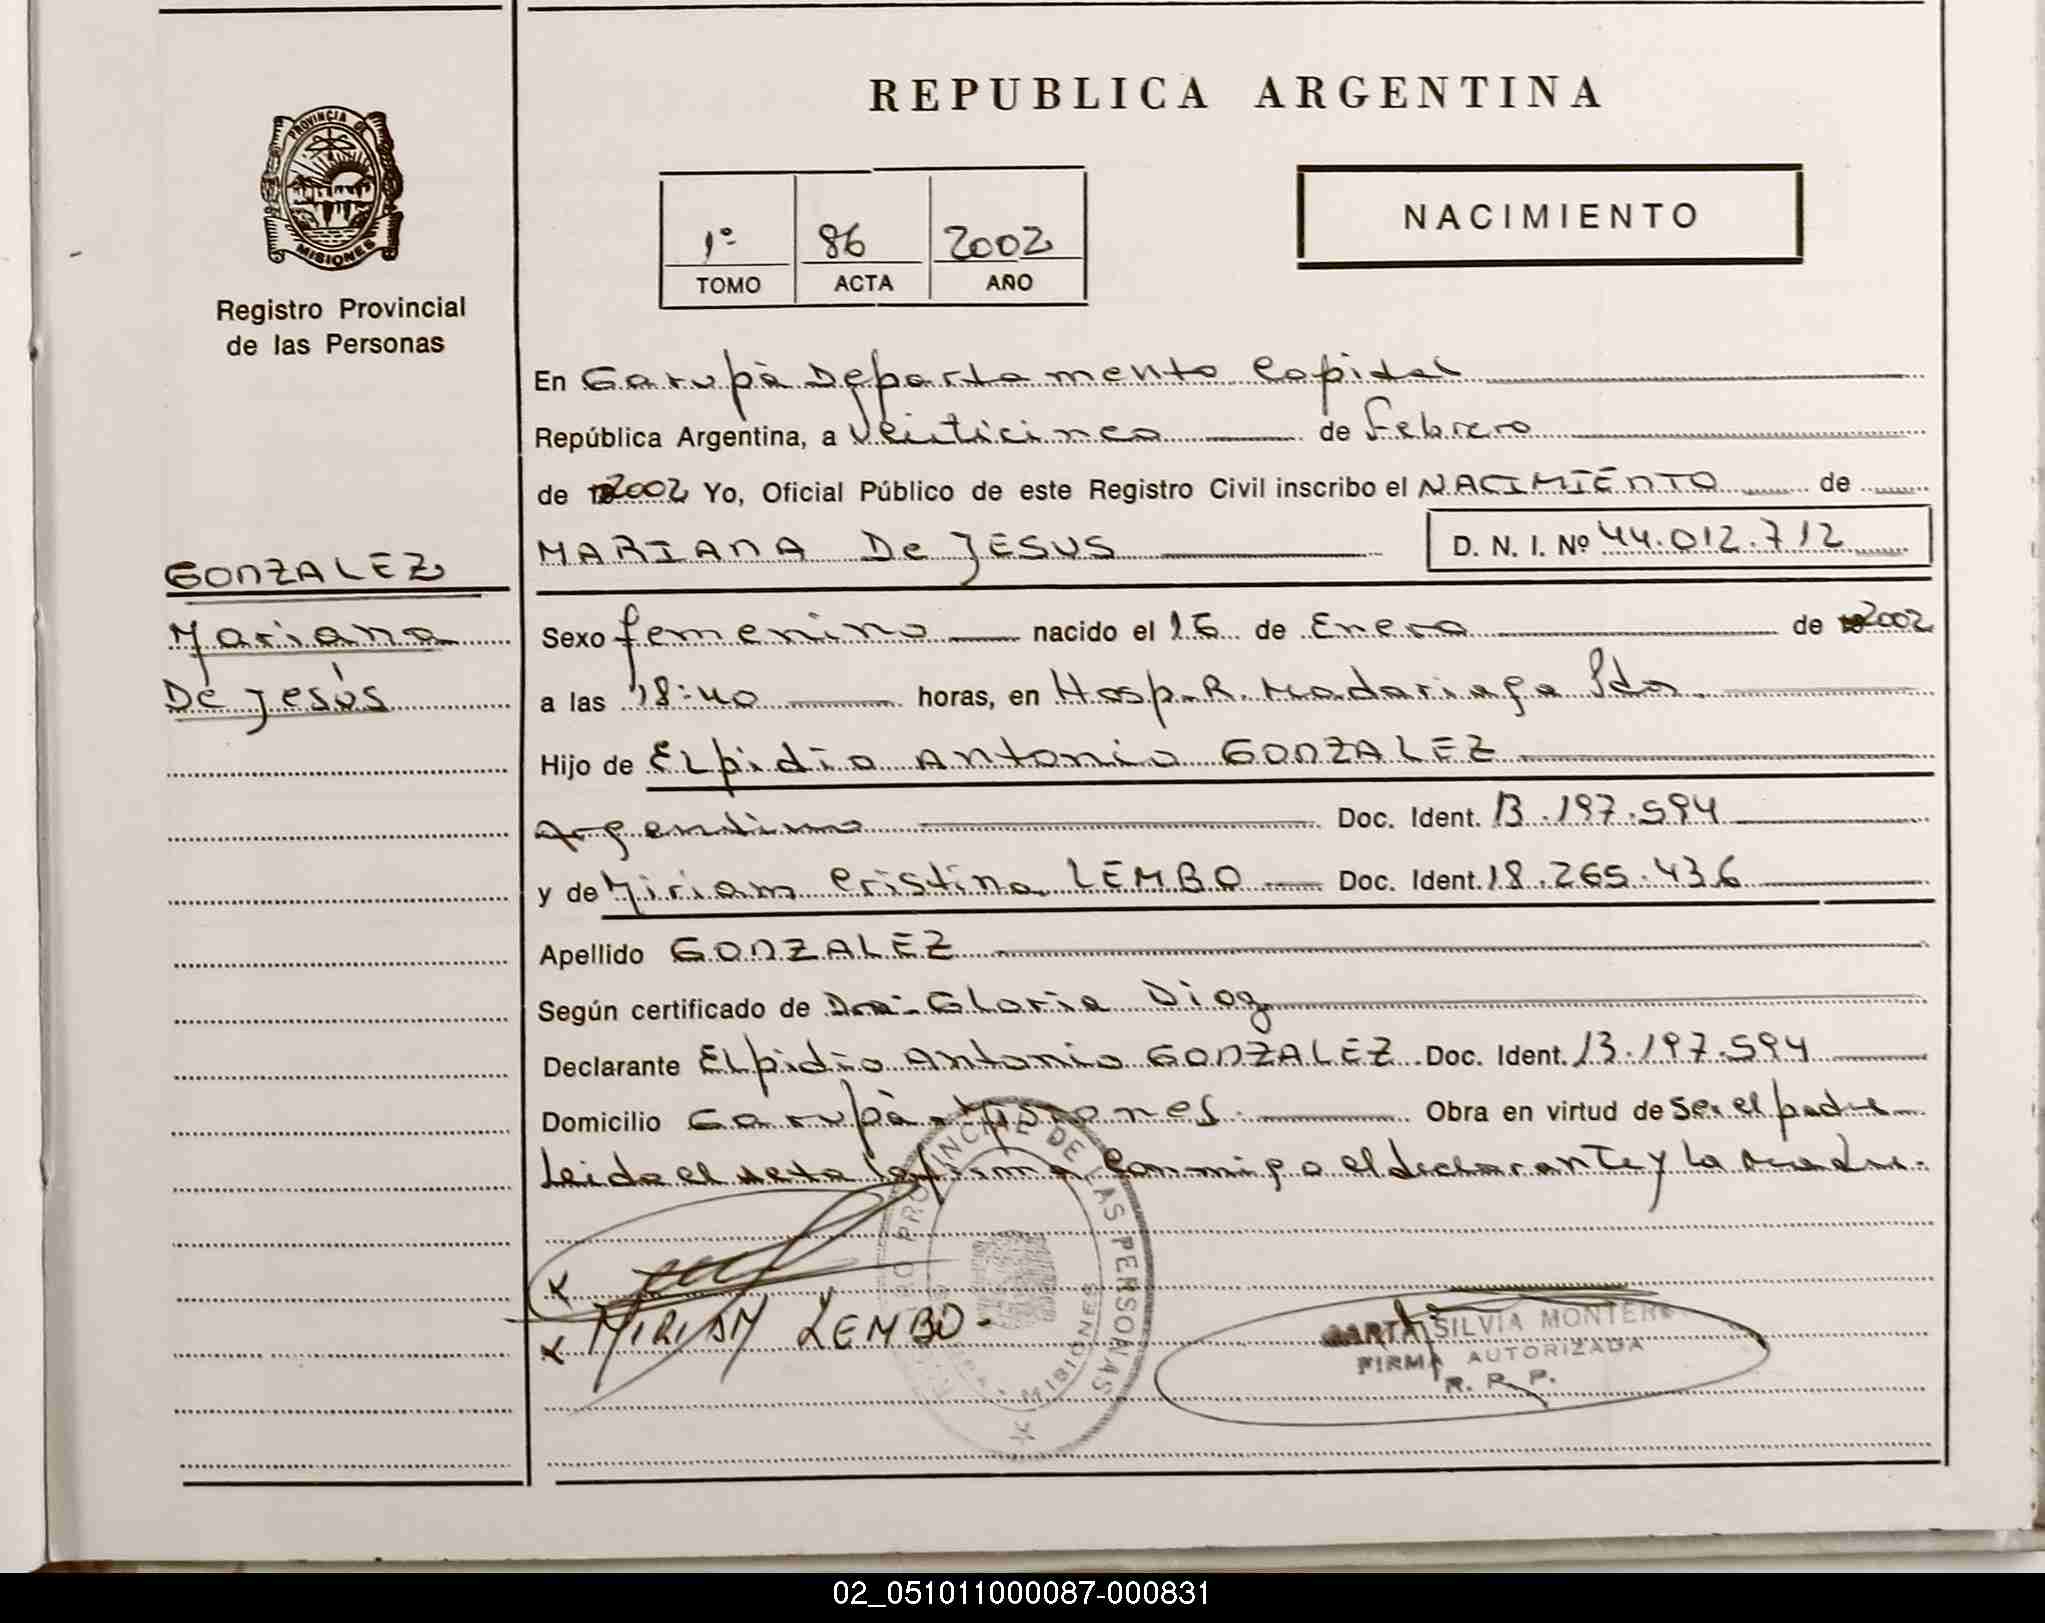 REPUBLICA ARGENTINA
PROVINCIA DE
MISIONES
Registro Provincial
de las Personas
1º 86 2002
TOMO ACTA AÑO
NACIMIENTO
En Garupà Departamento Capital
República Argentina, a Veiticinco de Febrero
de 2002 Yo, Oficial Público de este Registro Civil inscribo el NACIMIENTO de
MARIANA De JESUS D. N. I. Nº 44.012.712
GONZALEZ
Mariana
De Jesús
Sexo femenino nacido el 16 de Enero de 2002
a las 18:40 horas, en Hosp. R. Madariaga Pdas.
Hijo de ELpidio Antonio GONZALEZ
Argentino Doc. Ident. 13.197.594
y de Miriam Cristina LEMBO Doc. Ident. 18.265.436
Apellido GONZALEZ
Según certificado de Dra. Gloria Diaz
Declarante ELpidio Antonio GONZALEZ Doc. Ident. 13.197.594
Domicilio Garupà - Misiones. Obra en virtud de Ser el padre
Leida el acta la firma conmigo el declarante y la Madre.
PROVINCIAL DE LAS PERSONAS
MISIONES
x
x MIRIAM LEMBO
SILVIA MONTERO
FIRMA AUTORIZADA
R. P. P.
02_051011000087-000831